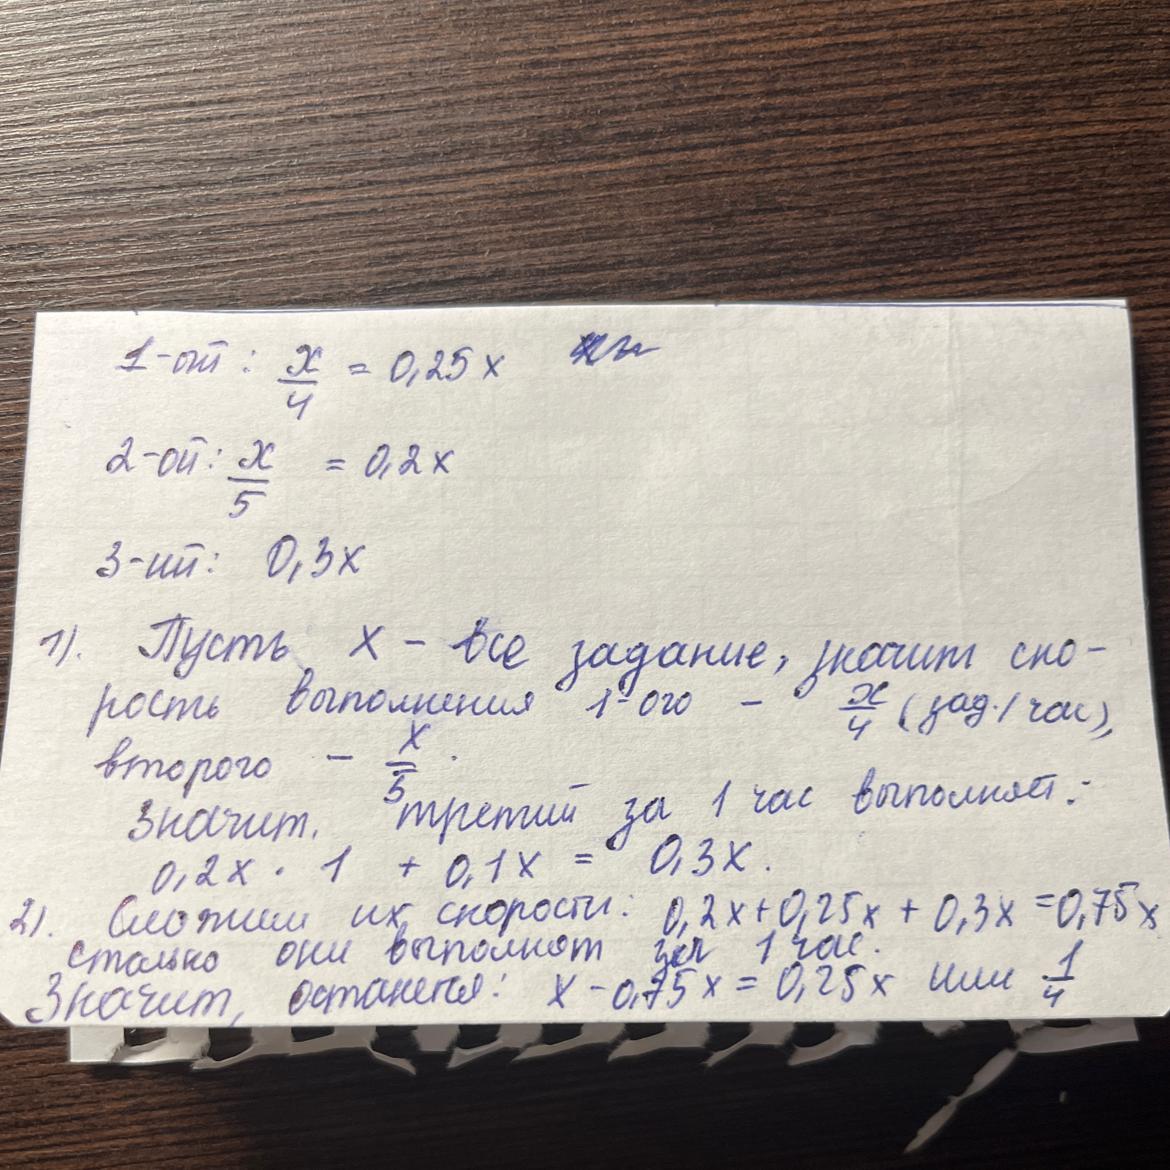 1-ой: x/4 = 0,25x
2-ой: x/5 = 0,2x
3-ий: 0,3x
1). Пусть x - все задание, значит ско-
рость выполнения 1-ого - x/4 (зад./час),
второго - x/5.
Значит, третий за 1 час выполняет:
0,2x · 1 + 0,1x = 0,3x.
2). Сложим их скорости: 0,2x+0,25x + 0,3x =0,75x
столько они выполнят за 1 час.
Значит, останется: x - 0,75x = 0,25x или 1/4